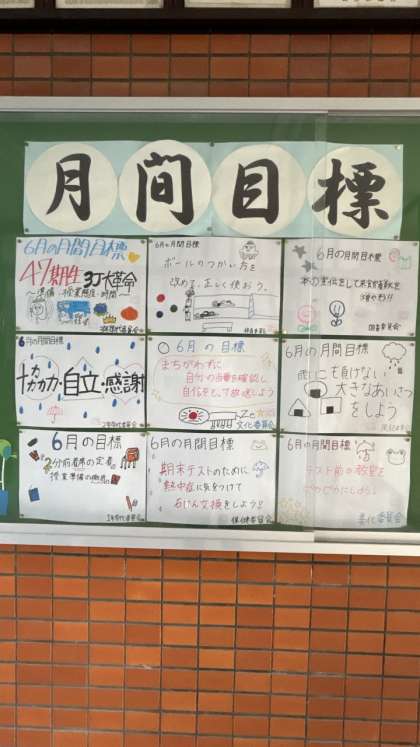 月間目標
6月の月間目標
47期生 3J大革命
～準備・授業態度・時間～
6月の月間目標
ボールのつかい方を
改めて、正しく使おう。
6月の月間目標
本の宣伝をして来館者数を
増やそう!!
図書委員会
6月の月間目標
自立・感謝
6月の目標
まちがわずに
自分の当番を確認し
自信をもって放送しよう
文化委員会
6月の月間目標
雨にも負けない
大きなあいさつ
をしよう
6月の目標
2分前着席の定着
授業準備の徹底
6月の月間目標
期末テストのために
熱中症に気をつけて
あせらず
保健委員会
6月の月間目標
テスト前の教室を
美化委員会